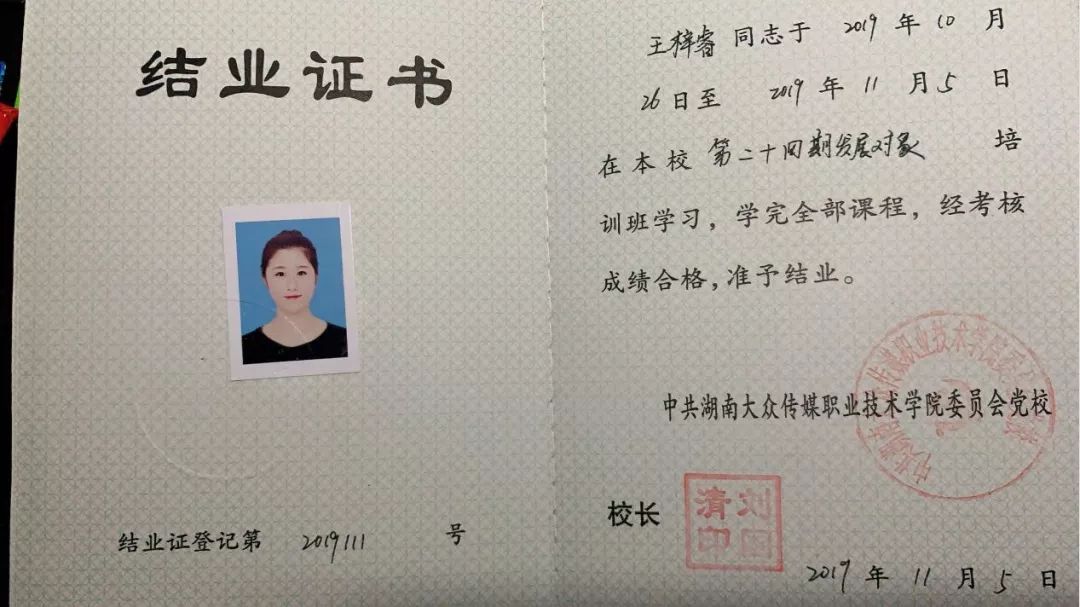 结业证书
结业证登记第 2019111 号
王梓睿 同志于 2019 年 10 月
26 日至 2019 年 11 月 5 日
在本校 第二十四期发展对象 培
训班学习，学完全部课程，经考核
成绩合格，准予结业。
中共湖南大众传媒职业技术学院委员会党校
校长
2019 年 11 月 5 日